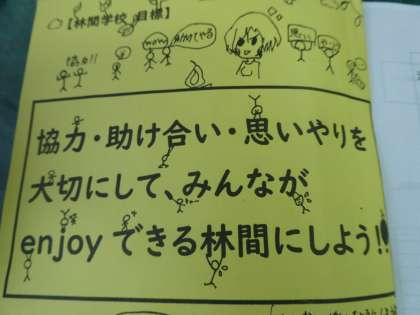 【林間学校 目標】
協力!!
協力・助け合い・思いやりを
大切にして、みんなが
enjoyできる林間にしよう!!